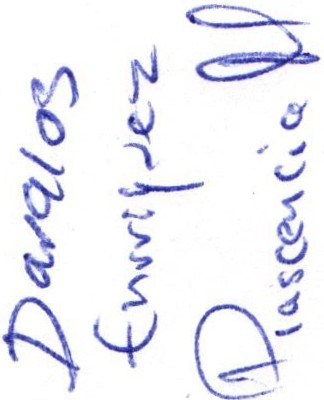 Davalos
Enriquez
Plascencia